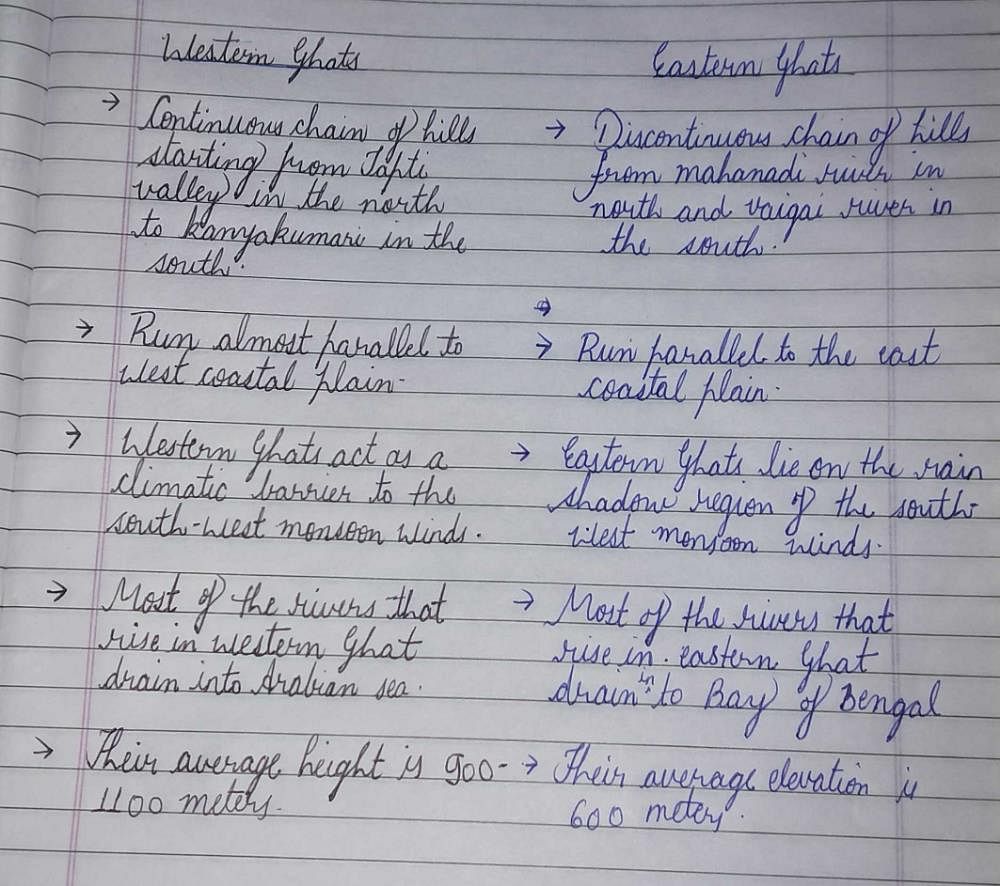 Western Ghats
Eastern Ghats
→ Continuous chain of hills
starting from Tapti
valley in the north
to Kanyakumari in the
south.
→ Discontinuous chain of hills
from mahanadi river in
north and vaigai river in
the south.
→ Run almost parallel to
west coastal plain.
→
→ Run parallel to the east
coastal plain.
→ Western Ghats act as a
climatic barrier to the
south-west monsoon winds.
→ Eastern Ghats lie on the rain
shadow region of the south-
West monsoon winds.
→ Most of the rivers that
rise in western Ghat
drain into Arabian sea.
→ Most of the rivers that
rise in eastern Ghat
drain in to Bay of Bengal
→ Their average height is 900-
1100 meters.
→ Their average elevation is
600 meters.